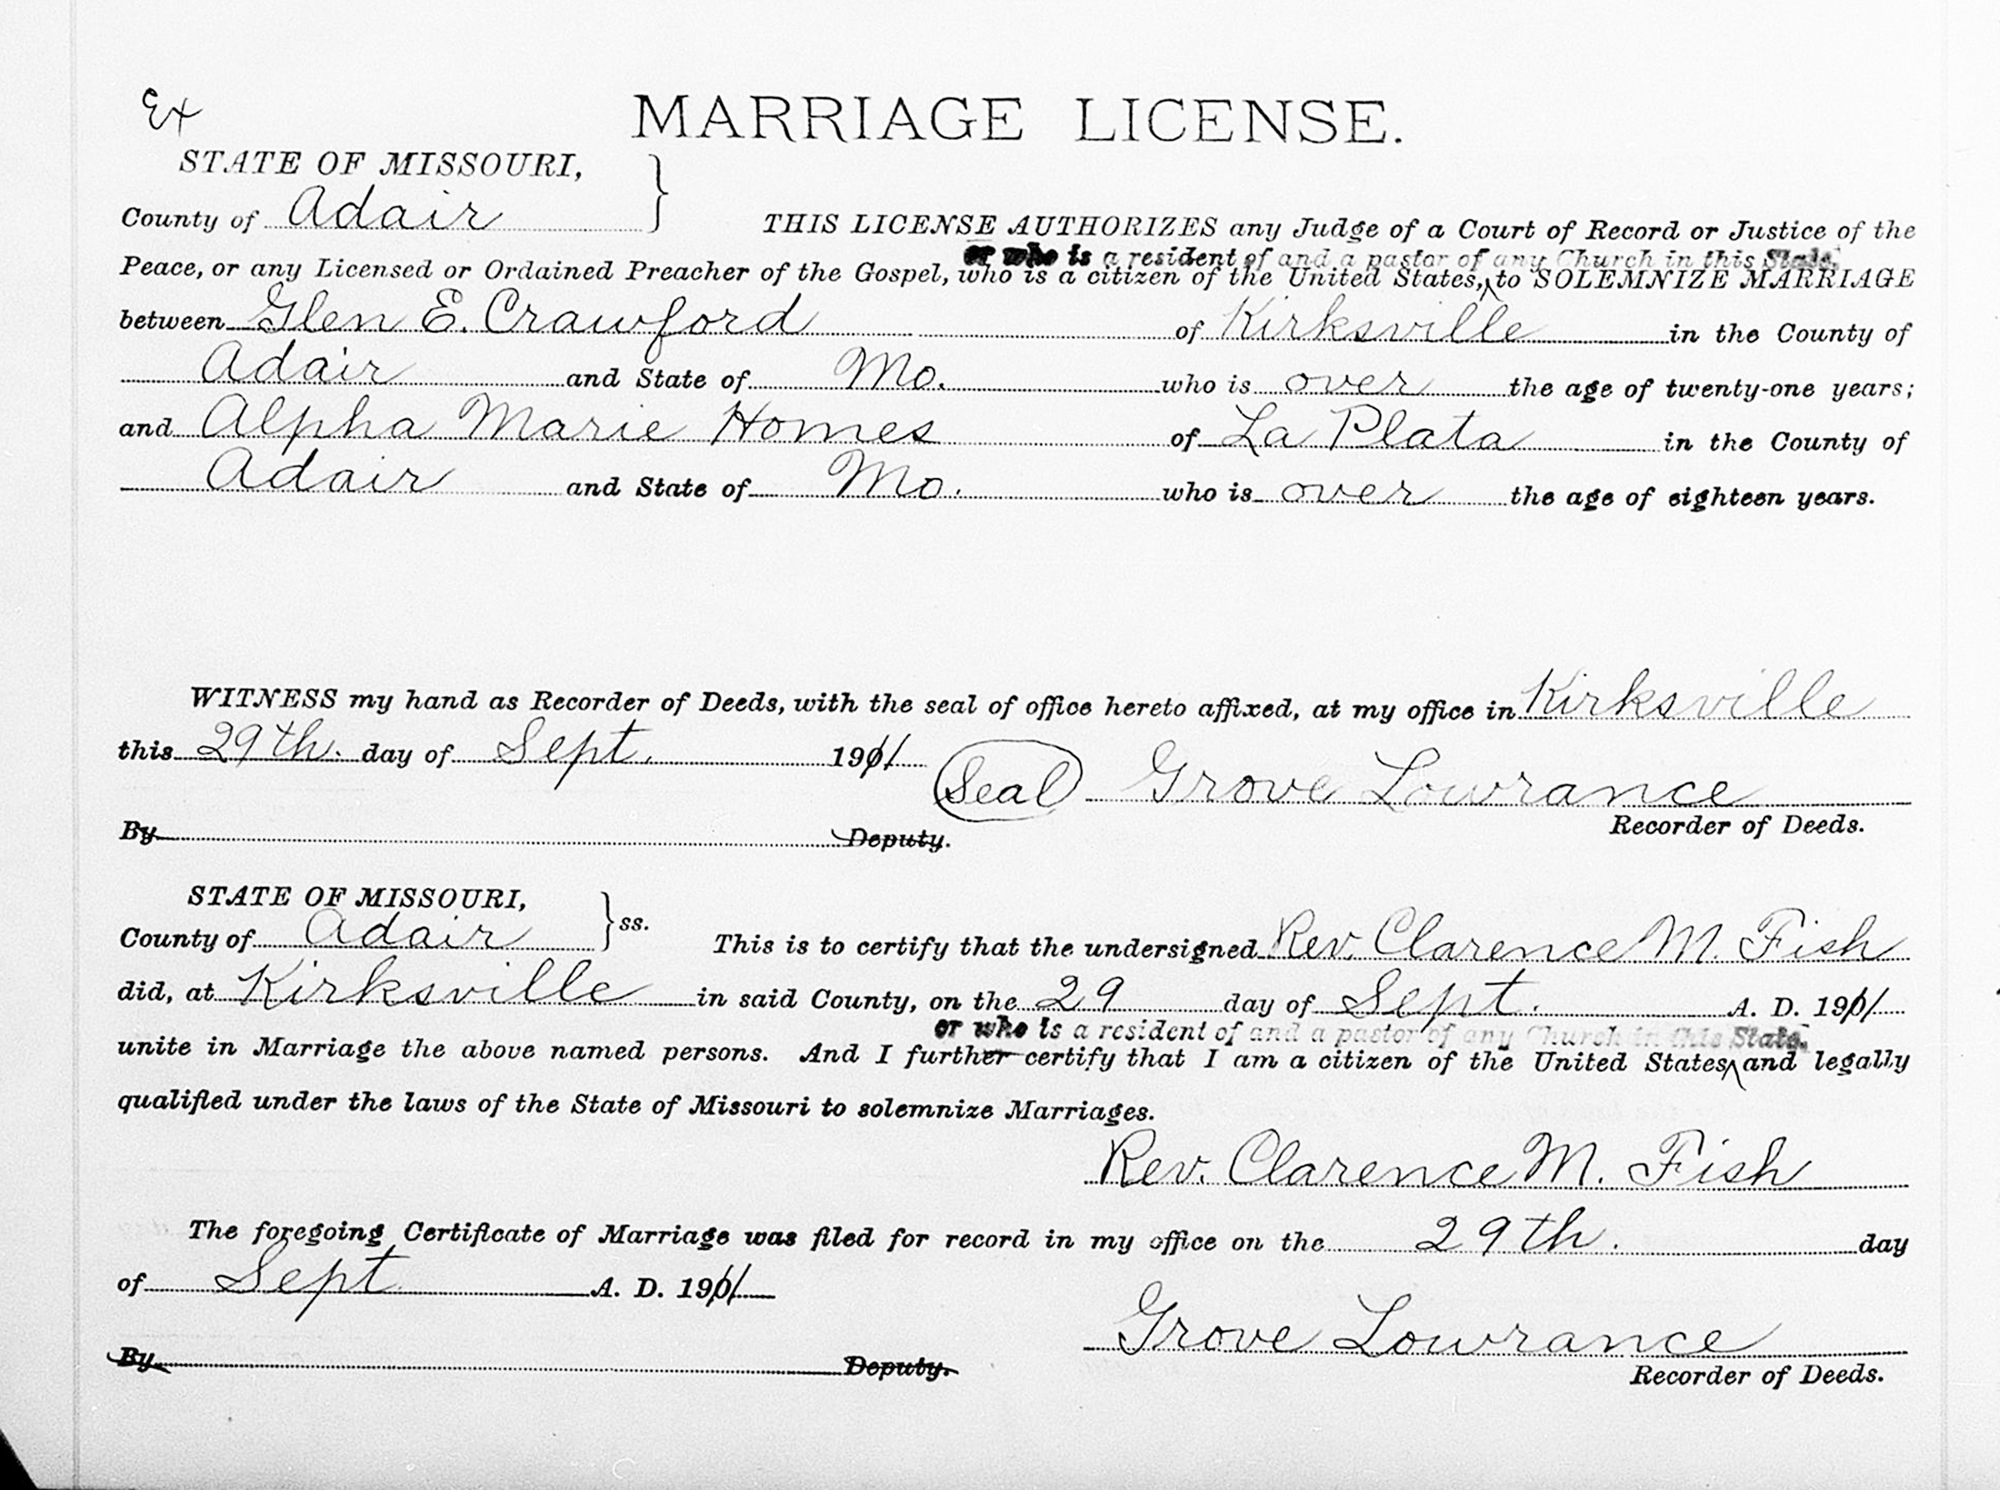 Ex
MARRIAGE LICENSE.
STATE OF MISSOURI,
County of Adair
THIS LICENSE AUTHORIZES any Judge of a Court of Record or Justice of the
or who is a resident of and a pastor of any Church in this State.
Peace, or any Licensed or Ordained Preacher of the Gospel, who is a citizen of the United States, to SOLEMNIZE MARRIAGE
between Glen E. Crawford of Kirksville in the County of
Adair and State of Mo. who is over the age of twenty-one years;
and Alpha Marie Homes of La Plata in the County of
Adair and State of Mo. who is over the age of eighteen years.
WITNESS my hand as Recorder of Deeds, with the seal of office hereto affixed, at my office in Kirksville
this 29th. day of Sept. 1911
Seal Grove Lowrance
By Deputy.
Recorder of Deeds.
STATE OF MISSOURI,
County of Adair } ss.
This is to certify that the undersigned Rev. Clarence M. Fish
did, at Kirksville in said County, on the 29 day of Sept. A. D. 1911
or who is a resident of and a pastor of any Church in this State.
unite in Marriage the above named persons. And I further certify that I am a citizen of the United States and legally
qualified under the laws of the State of Missouri to solemnize Marriages.
Rev. Clarence M. Fish
The foregoing Certificate of Marriage was filed for record in my office on the 29th. day
of Sept A. D. 1911
Grove Lowrance
By Deputy.
Recorder of Deeds.